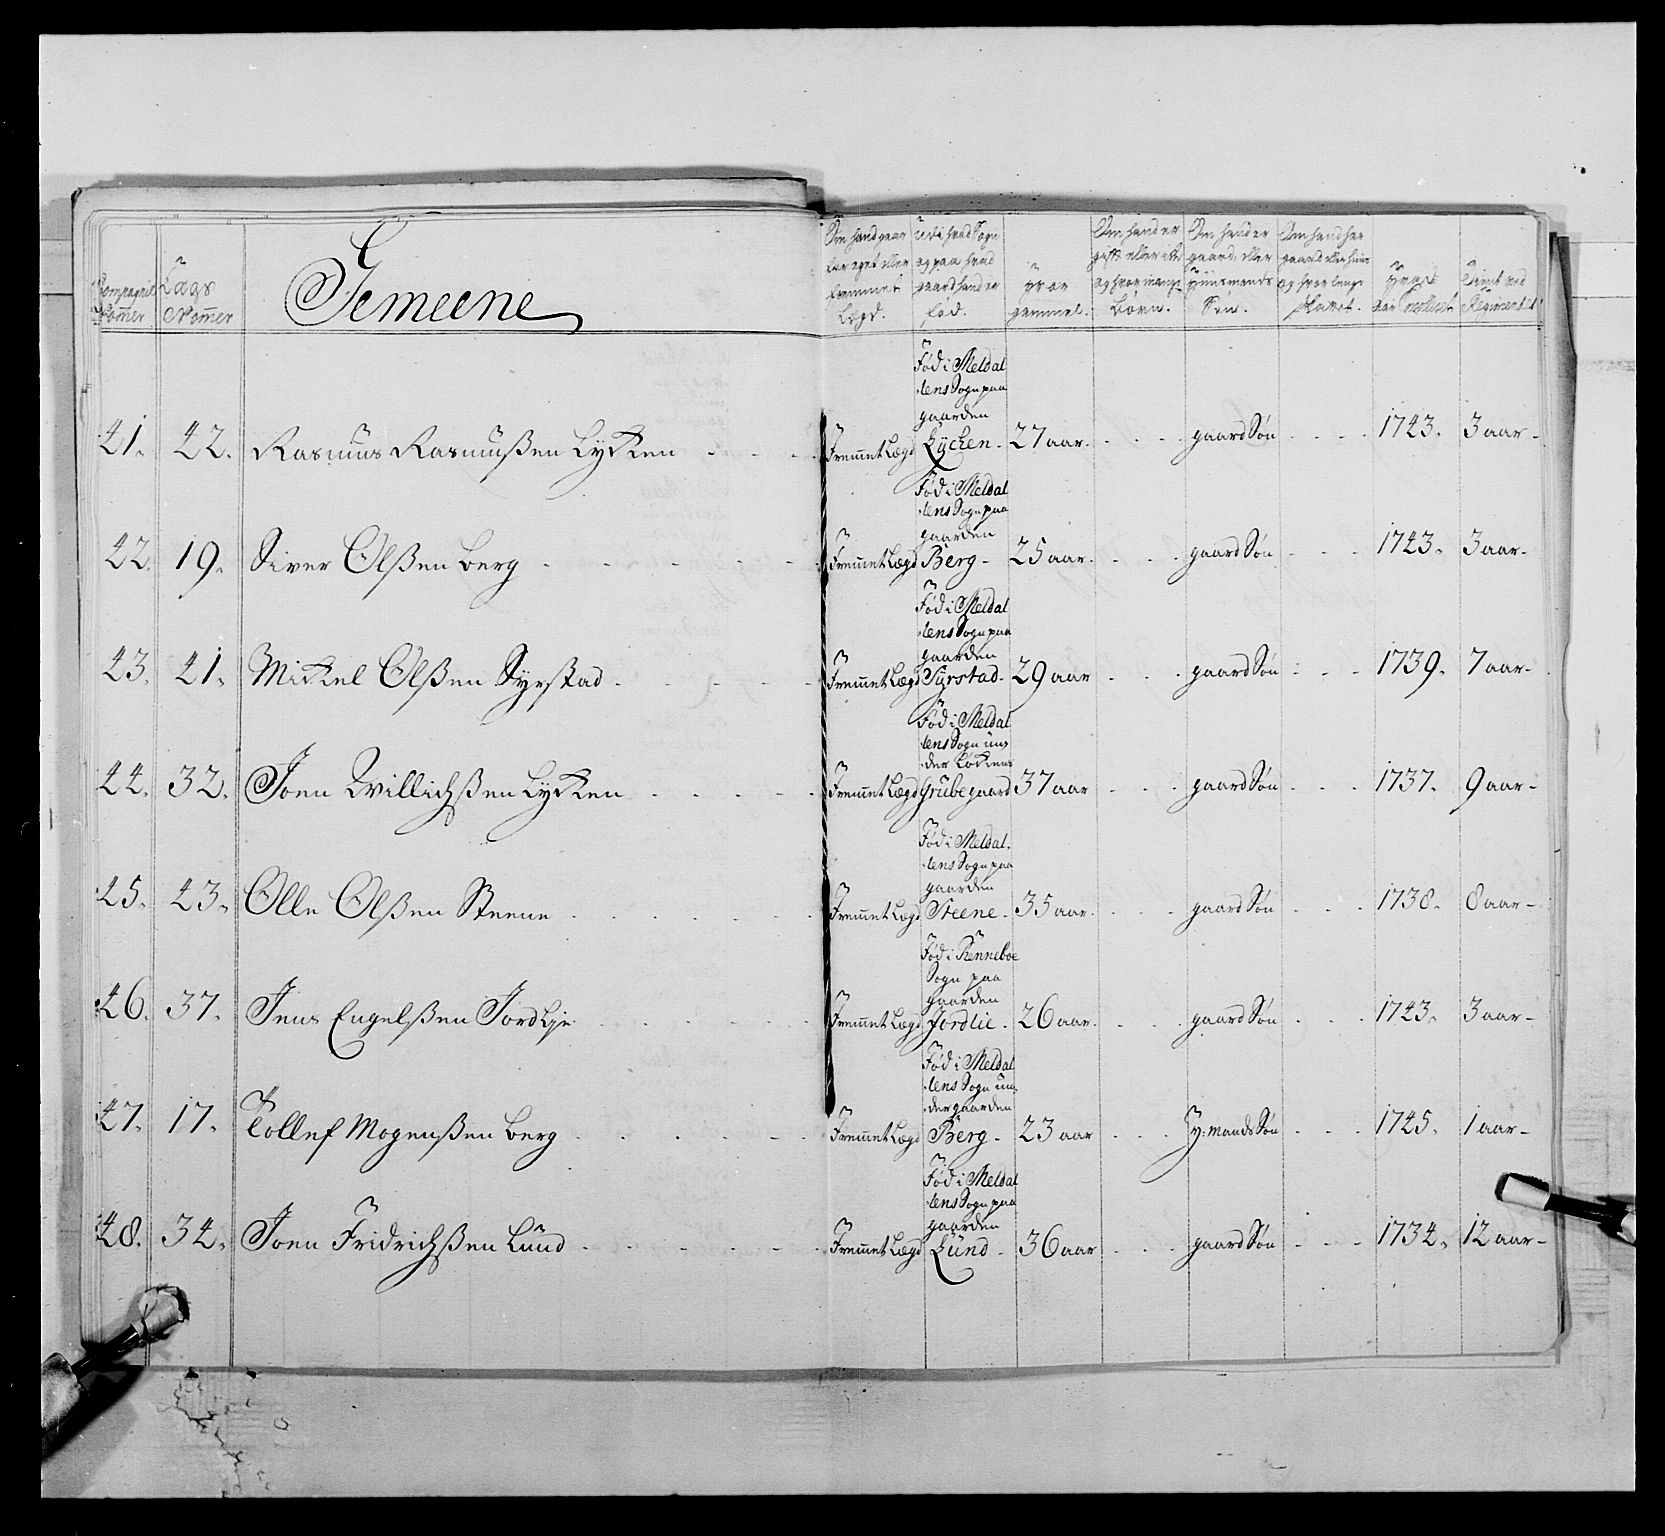 Compagnie Nom̄er
Lægs Nom̄er
Gemeene
Om hand gaar for eget eller fremmet Lægd.
udi hvad Sogn og paa hvad gaard hand er fød.
Hvor gammel.
Om hand er gift eller ikke og hvor mange Børn.
Om hand er gaard eller Huusmands Søn.
Om hand har gaard eller huus og hvor lenge
Hvad aar
Tient ved Regimentet
41. 42. Rasmus Rasmußen Lycken
Fremet Lægd
Fød i Meldal
lens Sogn paa
gaarden
Lÿchen - 27 aar. gaard Søn 1743. 3 aar -
42. 19. Siver Olßen berg
Fremet Lægd
Fød i Meldal
lens Sogn paa
gaarden
Berg - 25 aar. gaard Søn 1743. 3 aar -
43. 41. Mickel Olßen Syrstad
Fremet Lægd
Fød i Meldal
lens Sogn paa
gaarden
Syrstad - 29 aar gaard Søn 1739. 7 aar -
44. 32. Joen Willichßen Lycken
Fremet Lægd
Fød i Meldal
lens Sogn un
der Løkens
Grube gaard 37 aar gaard Søn 1737. 9 aar -
45. 43. Olle Olßen Steene
Fremet Lægd
Fød i Meldal
lens Sogn paa
gaarden
Steene - 35 aar. gaard Søn 1738. 8 aar -
46. 37. Jens Engelßen Jordlje
Fremet Lægd
Fød i Renneboe
Sogn paa
gaarden
Jordlie - 26 aar. gaard Søn 1743. 3 aar -
47. 17. Tollef Mogenßen berg
Fremet Lægd
Fød i Meldal
lens Sogn un
der gaarden
Berg - 23 aar Hŭ: mands Søn 1745. 1 aar -
48. 34. Joen Fridrichßen Lund
Fremet Lægd
Fød i Meldal
lens Sogn paa
gaarden
Lund - 36 aar gaard Søn 1734. 12 aar -